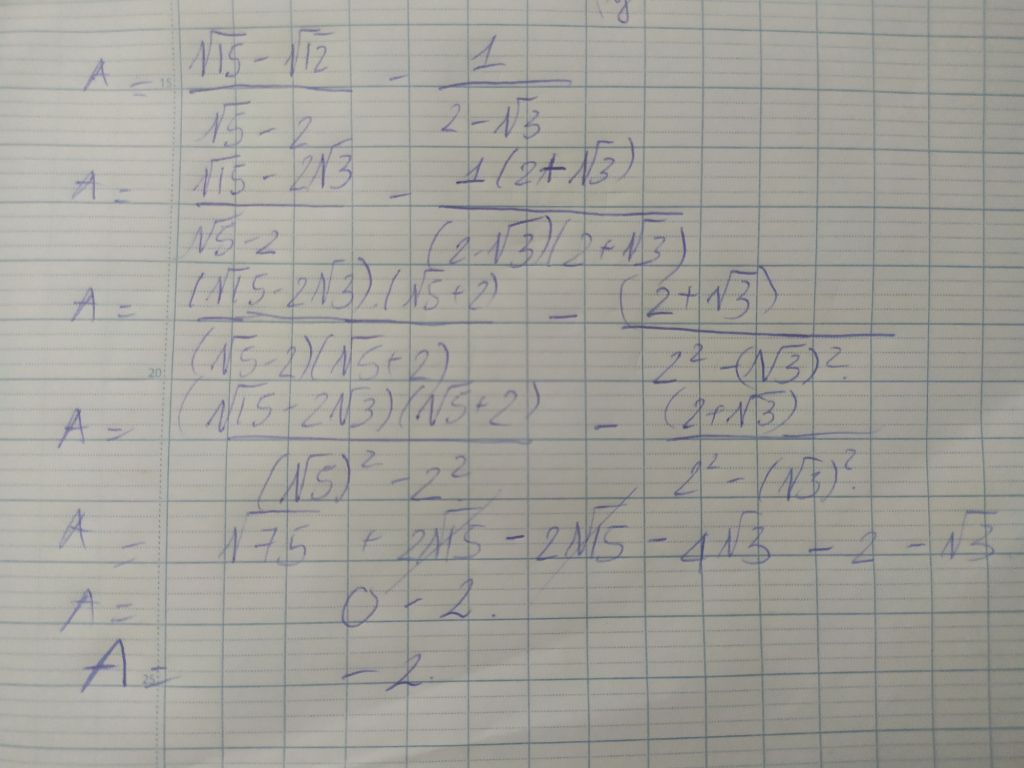 A = (√15 - √12)/(√5 - 2) - 1/(2 - √3)
A = (√15 - 2√3)/(√5 - 2) - 1(2 + √3)/((2 - √3)(2 + √3))
A = (√15 - 2√3).(√5 + 2)/((√5 - 2)(√5 + 2)) - (2 + √3)/(2² - (√3)².)
A = (√15 - 2√3)(√5 + 2)/((√5)² - 2².) - (2 + √3)/(2² - (√3)².)
A = √75 + 2√15 - 2√15 - 4√3 - 2 - √3
A = 0 - 2.
A = - 2.